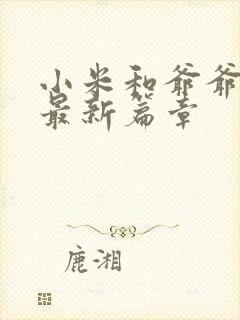 小米和爷爷
最新篇章
鹿湘